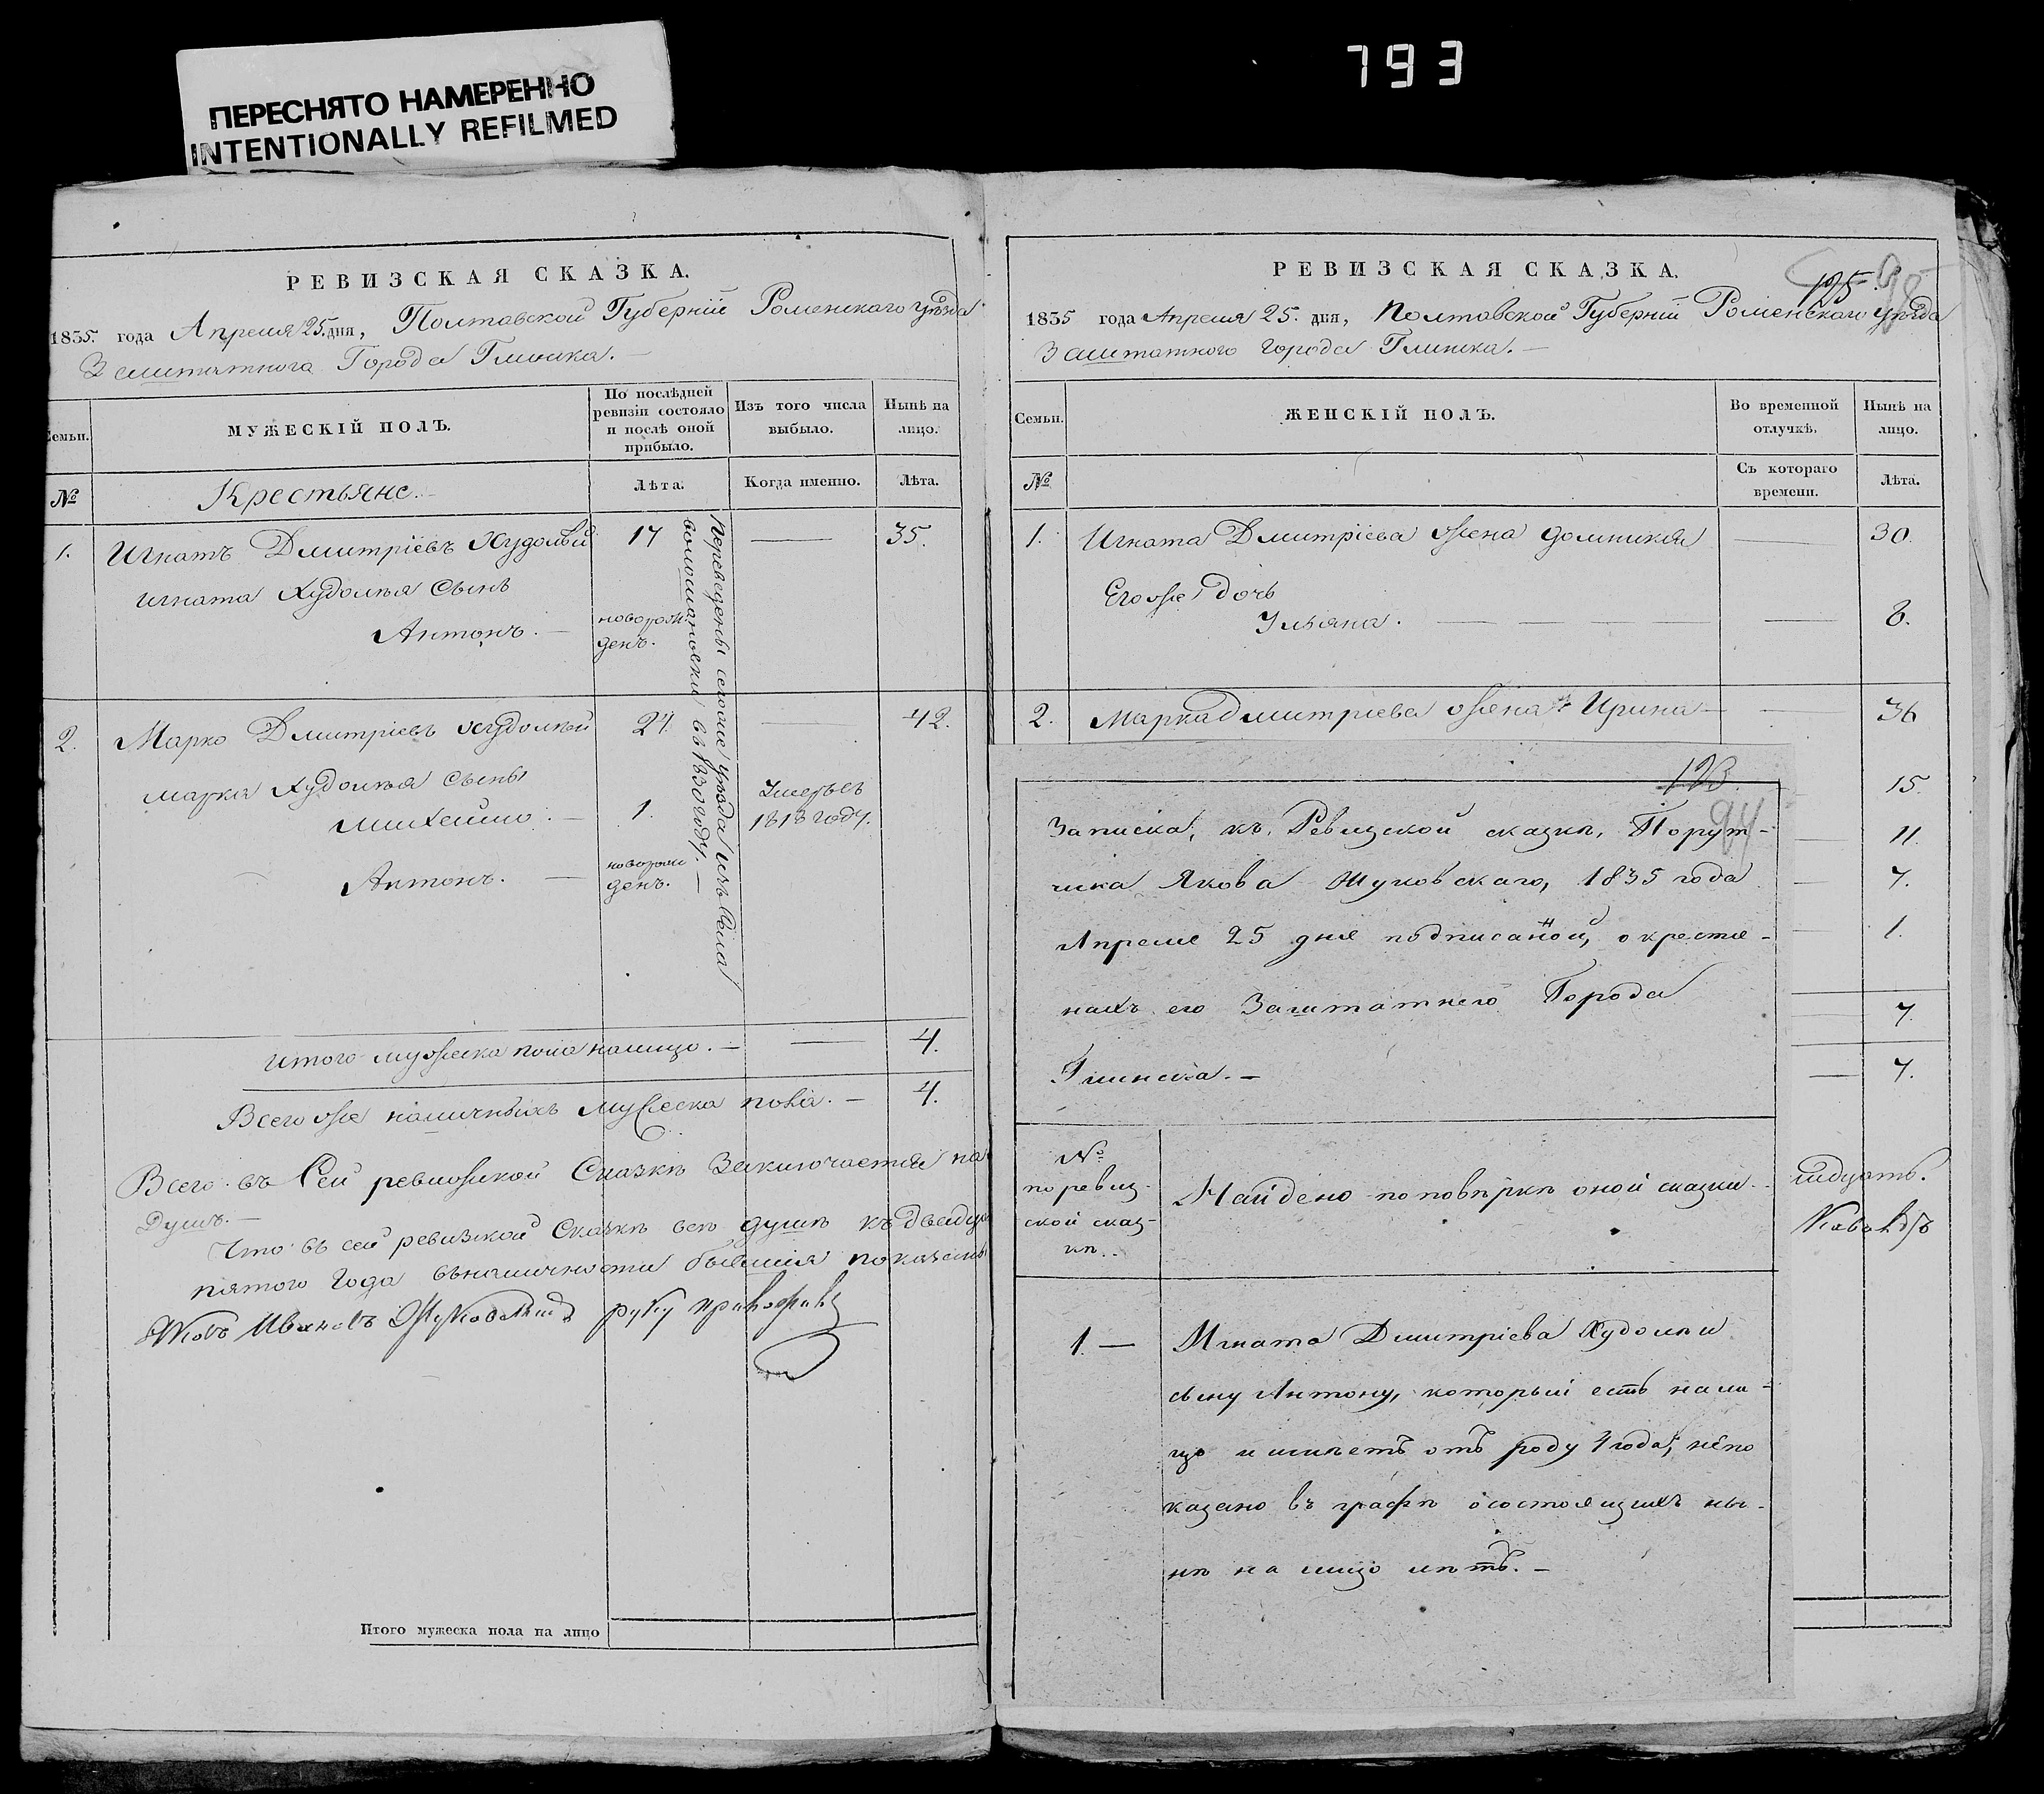 ПЕРЕСНЯТО НАМЕРЕННО
INTENTIONALLY REFILMED
793
РЕВИЗСКАЯ СКАЗКА.
1835. года Апреля 25. дня, Полтавской Губерніи Роменскаго уѣзда
Заштатнога Города Глинска. —
Семьи.
МУЖЕСКІЙ ПОЛЪ.
По послѣдней ревизіи состояло и послѣ оной прибыло.
Изъ того числа выбыло.
Нынѣ на лицо.
№
Крестьяне.
Лѣта.
Когда именно.
Лѣта.
1. Игнатъ Дмитріевъ Худолѣй 17 — 35.
Игната Худолѣя Сынъ
Антонъ. — новорож-
денъ.
Переведены сегоже уѣзда изъ Села
в 1830 году. —
2. Марко Дмитріевъ Худолѣй 24. — 42.
Марка Худолѣя Сыны
Михайло. — 1. Умеръ въ
1818 году.
Антонъ. — новорож
денъ.
Итого мужеска пола налицо. — — 4.
Всегоже наличныхъ мужеска пола. — 4.
Всего въ Сей ревизской Сказкѣ Заключается на
Душъ. —
Что въ сей ревизкой Сказкѣ всѣ душѣ къ двадца
пятого Года вналичности бывшія показаны
Яковъ Ивановъ Жуковскій руку приложилъ
Итого мужеска пола на лицо
РЕВИЗСКАЯ СКАЗКА.
125.
1835 года Апреля 25. дня, Полтавской Губерніи Роменскаго уѣзда
Заштатного города Глинска. —
Семьи.
ЖЕНСКІЙ ПОЛЪ.
Во временной отлучкѣ.
Нынѣ на лицо.
№
Съ котораго времени.
Лѣта.
1. Игната Дмитріева жена Домникія — 30.
Егоже дочь
Ульяна. — — — — 8.
2. Марка Дмитріева жена Ирина — — 36
15.
11.
7.
1.
7.
7.
Ковалѣ
123.
94
Записка, къ Ревизской сказкѣ, Порут-
чика Якова Жуковскаго, 1835 года
Апреля 25 дня подписанной, о крестья-
нахъ его Заштатнего Города
Глинска. —
№
по ревиз-
ской сказ-
кѣ.
Найдено по повѣркѣ оной сказки.
1. — Игната Дмитріева Худолѣи
сыну Антону, который есть на ли-
цо и имѣетъ отъ роду 4 года, непо
казано въ графѣ о состоящихъ ны-
нѣ на лицо лѣтъ. —